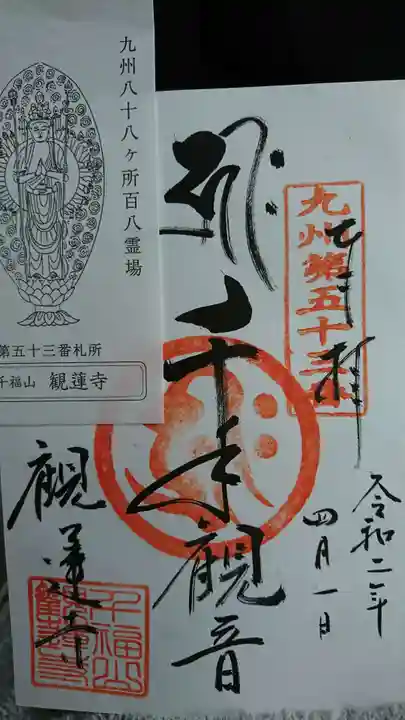 九州八十八ヶ所百八霊場
第五十三番札所
千福山 観蓮寺
九州第五十三番
奉拝
令和二年
四月一日
千手観音
観蓮寺
千福山